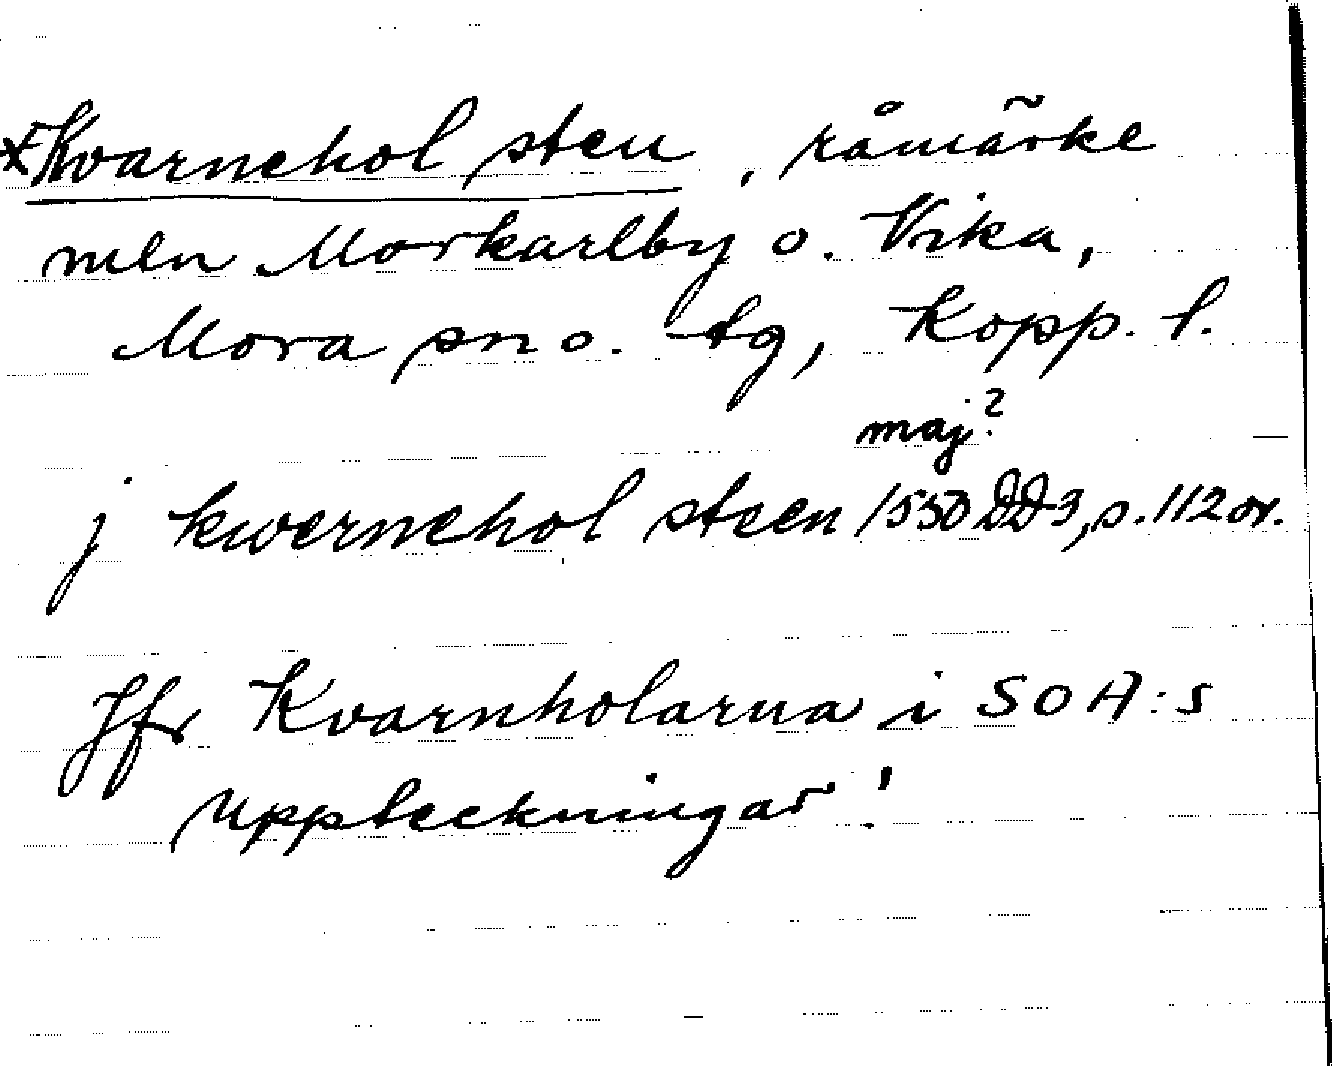 *Kvarnehol sten, råmärke
mln Morkarlby o. Vika,
Mora sn o. tg, Kopp. l.
maj?
j kwernehol steen 1550 DD3, s. 112 or.
Jfr Kvarnholarna i SOA:s
uppteckningar!